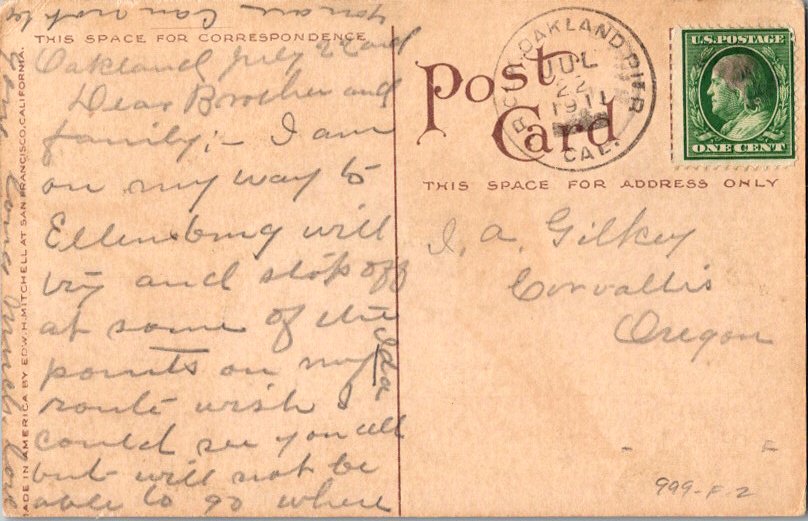 THIS SPACE FOR CORRESPONDENCE
Oakland July 22nd
Dear Brother and
family; - I am
on my way to
Ellensburg will
try and stop off
at some of the
points on my
route wish I
could see you all
but will not be
able to go where
you are can not be
long Love
Ida
MADE IN AMERICA BY EDW. H. MITCHELL AT SAN FRANCISCO, CALIFORNIA.
Post
Card
OAKLAND PIER
JUL
22
1911
CAL.
U.S. POSTAGE
ONE CENT
THIS SPACE FOR ADDRESS ONLY
I. A. Gilkey
Corvallis
Oregon
999-F-2